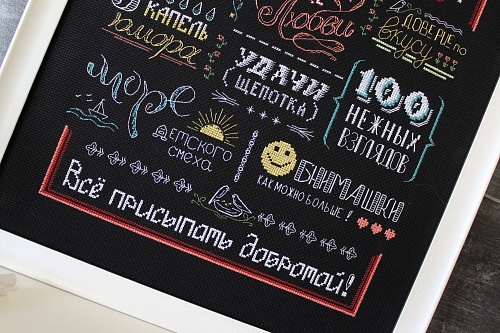 5 КАПЕЛЬ
юмора
Любви
ДОВЕРИЕ по
вкусу
УДАЧИ
(ЩЕПОТКА)
100
НЕЖНЫХ
ВЗГЛЯДОВ
море
ДЕТСКОГО
СМЕХА
ВНИМАШКИ
КАК МОЖНО БОЛЬШЕ!
Всё присыпать добротой!